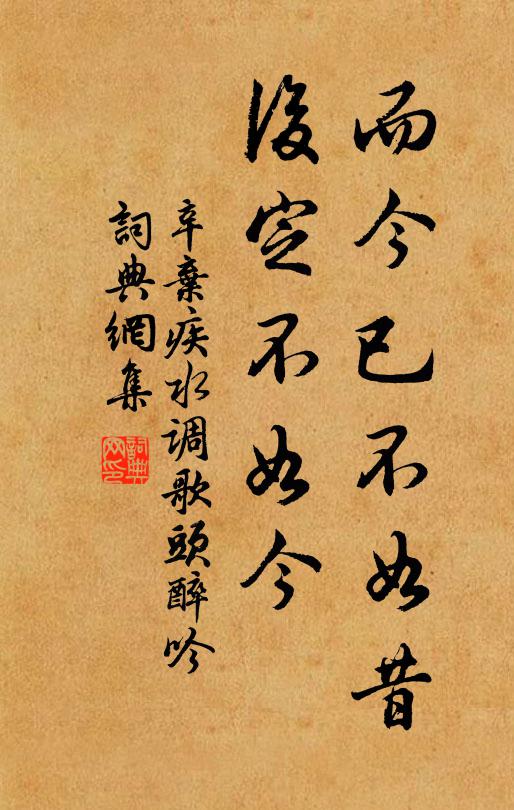 而今已不如昔
後定不如今
辛棄疾水调歌頭醉吟
詞典網集
詞典網印